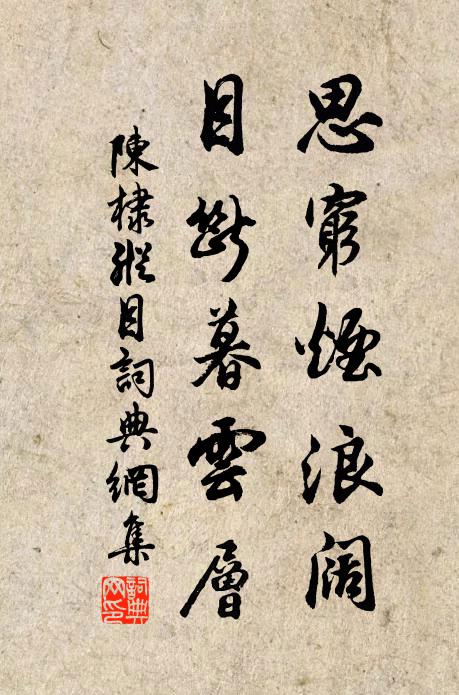 思窮煙浪阔
目斷暮雲層
陳棣縱目詞典網集
詞典